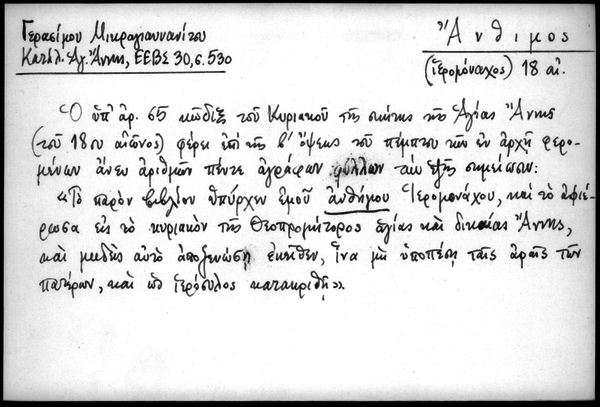 Γερασίμου Μικραγιαννανίτου
Κατάλ. Ἁγ. Ἄννης, ΕΕΒΣ 30, σ. 530
Ἄνθιμος
(ἱερομόναχος) 18 αἰ.
Ὁ ὑπ' ἀρ. 65 κῶδιξ τοῦ Κυριακοῦ τῆς σκήτης τῆς Ἁγίας Ἄννης
(τοῦ 18ου αἰῶνος) φέρει ἐπὶ τῆς β' ὄψεως τοῦ πέμπτου τῶν ἐν ἀρχῇ φερο-
μένων ἄνευ ἀριθμῶν πέντε ἀγράφων φύλλων τὴν ἑξῆς σημείωσιν:
«Τὸ παρὸν βιβλίον ὑπῆρχεν ἐμοῦ ἀνθήμου Ἱερομονάχου, καὶ τὸ ἀφιέ-
ρωσα εἰς τὸ κυριακὸν τῆς Θεοπρομήτορος ἁγίας καὶ δικαίας Ἄννης,
καὶ μηδεὶς αὐτὸ ἀποξενώσῃ ἐκεῖθεν, ἵνα μὴ ὑποπέσῃ ταῖς ἀραῖς τῶν
πατέρων, καὶ ὡς ἱερόσυλος κατακριθῇ».